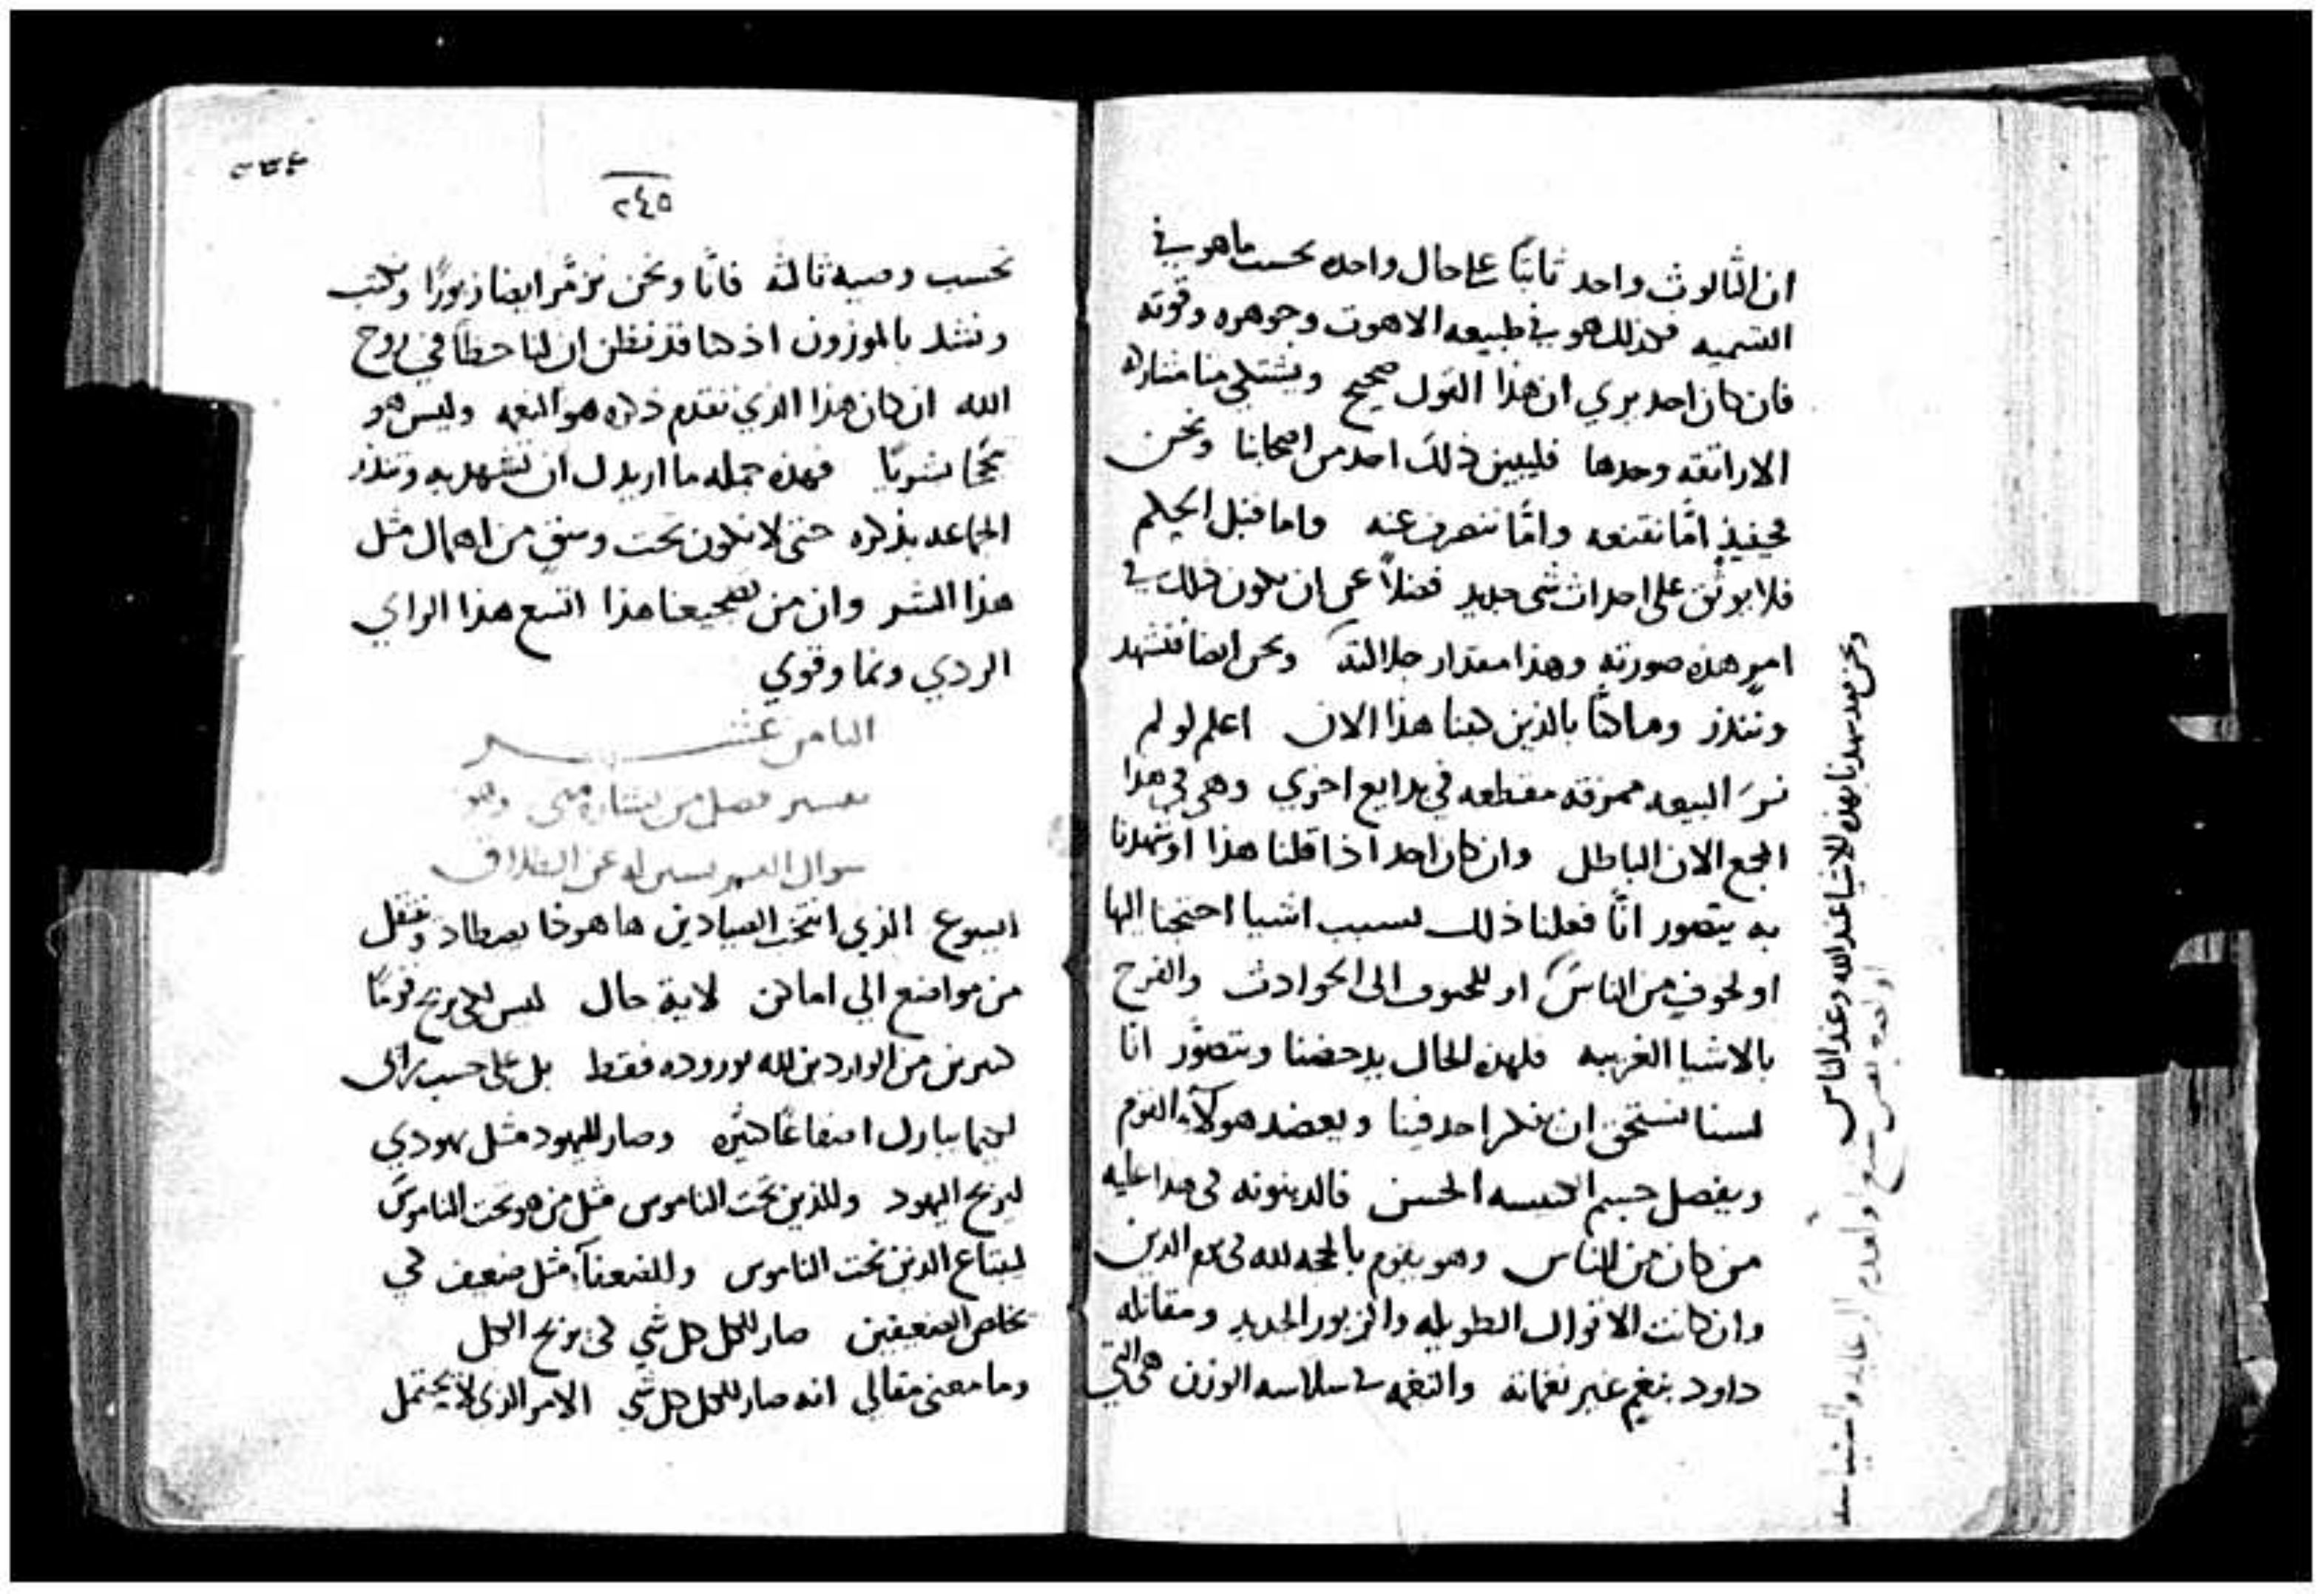 ان الثالوث واحد ثابتًا على حال واحده بحسب ما هو في
التسميه فكذلك هو في طبيعه الاهوت وجوهره وقوته
فان كان احد يري ان هذا القول صحيح ويشتكي منا
وحدها فليبين ذلك احد من اصحابنا ونحن
حينيذٍ امّا نقنعه وامّا ننصرف عنه واما قبل الحكم
فلا يوثق على احداث شي جديد فضلاً عن ان يكون ذلك في
امرٍ هذه صورته وهذا مقدار جلالته ونحن ايضا فنشهد
وننذر بالذين هنا هذا الان اعلم لو لم
نرَ البيعه ممزقه مقطعه في بدايع اخري وهي في هذا
المجمع الان الباطل وان كان احد اذا قلنا هذا او شهدنا
به يتصور انّا فعلنا ذلك بسبب اشيا احتجنا اليها
او لخوفٍ من الناس او الى الحوادث والفرح
بالاشيا الغريبه فلهذه الحال يدحضنا ويتصوّر انّا
لسنا نستحق ان نكر احد فينا ويعضد هولآء القوم
ويفصل جسم الكنيسه الحسن فالدينونه في هذا عليه
من كان من الناس وهو يقوم بالحجه لله في يوم الدين
وان كانت الاقوال الطويله والزبور الجديد ومقابله
داود بنغم غير نغماته والنغمه في سلاسه الوزن هي التي
ونحن بهذه الاشيا عند الله وعند الناس
٢٤٥
تحسب وصيه ثالثه فانّا ونحن نزمّر ايضا زبورًا ونكتب
وننشد بالموزون اذ كنا قد نظن ان لنا حظًا في روح
الله ان كان هذا الذي تقدم ذكره هو النعمه وليس هو
فهذه جمله ما اريدك ان تشهد به وتنذر
الجماعه بذكره حتى لا نكون تحت من اهمال مثل
هذا الشر وان من تضجيعنا هذا اتسع هذا الراي
الردي ونما وقوي
الثامن عشر
تفسير فصل من بشاره متى وهو
عن الطلاق
ايسوع الذي انتخب الصيادين ها هوذا يصطاد وينتقل
من مواضع الي اماكن لاية حال ليس لكي يربح قومًا
كثيرين من الواردين لله بوروده فقط بل على حسب راى
لكيما يبارك اصقاعًا كثيره وصار لليهود مثل يهودي
ليربح اليهود وللذين تحت الناموس مثل من هو تحت الناموس
ليبتاع الذين تحت الناموس وللضعفآء مثل ضعيف لكي
يخلص الضعيفين صار للكل كل شي لكي يربح الكل
وما معنى مقالي انه صار للكل كل شي الامر الذي لا يحتمل